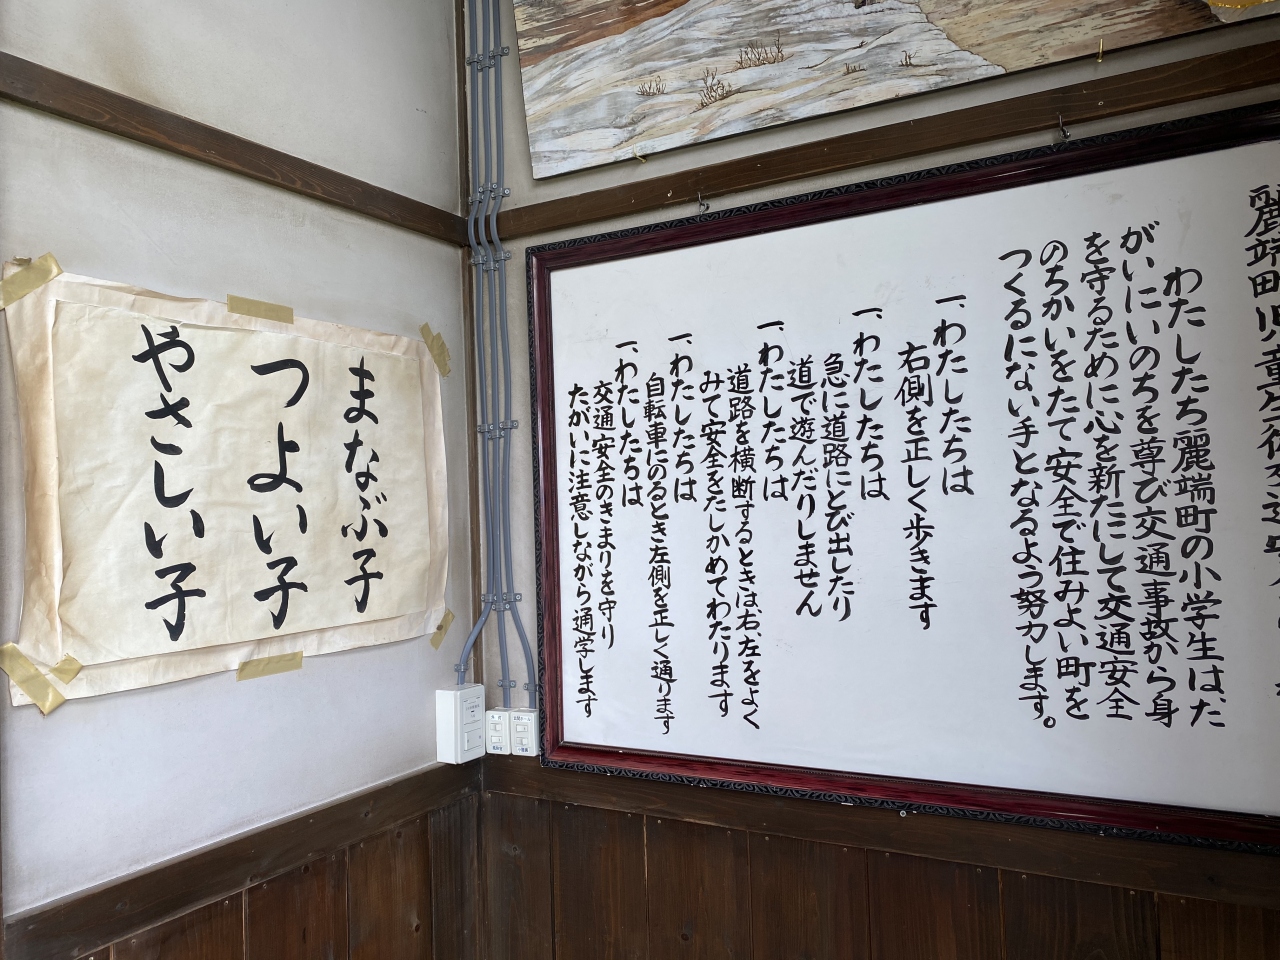 まなぶ子
つよい子
やさしい子
麗端町児童生徒交通安全
わたしたち麗端町の小学生は、た
がいにいのちを尊び交通事故から身
を守るために心を新たにして交通安全
のちかいをたて安全で住みよい町を
つくるにない手となるよう努力します。
一、わたしたちは
右側を正しく歩きます
一、わたしたちは
急に道路にとび出したり
道で遊んだりしません
一、わたしたちは
道路を横断するときは、右、左をよく
みて安全をたしかめてわたります
一、わたしたちは
自転車にのるとき左側を正しく通ります
一、わたしたちは
交通安全のきまりを守り
たがいに注意しながら通学します